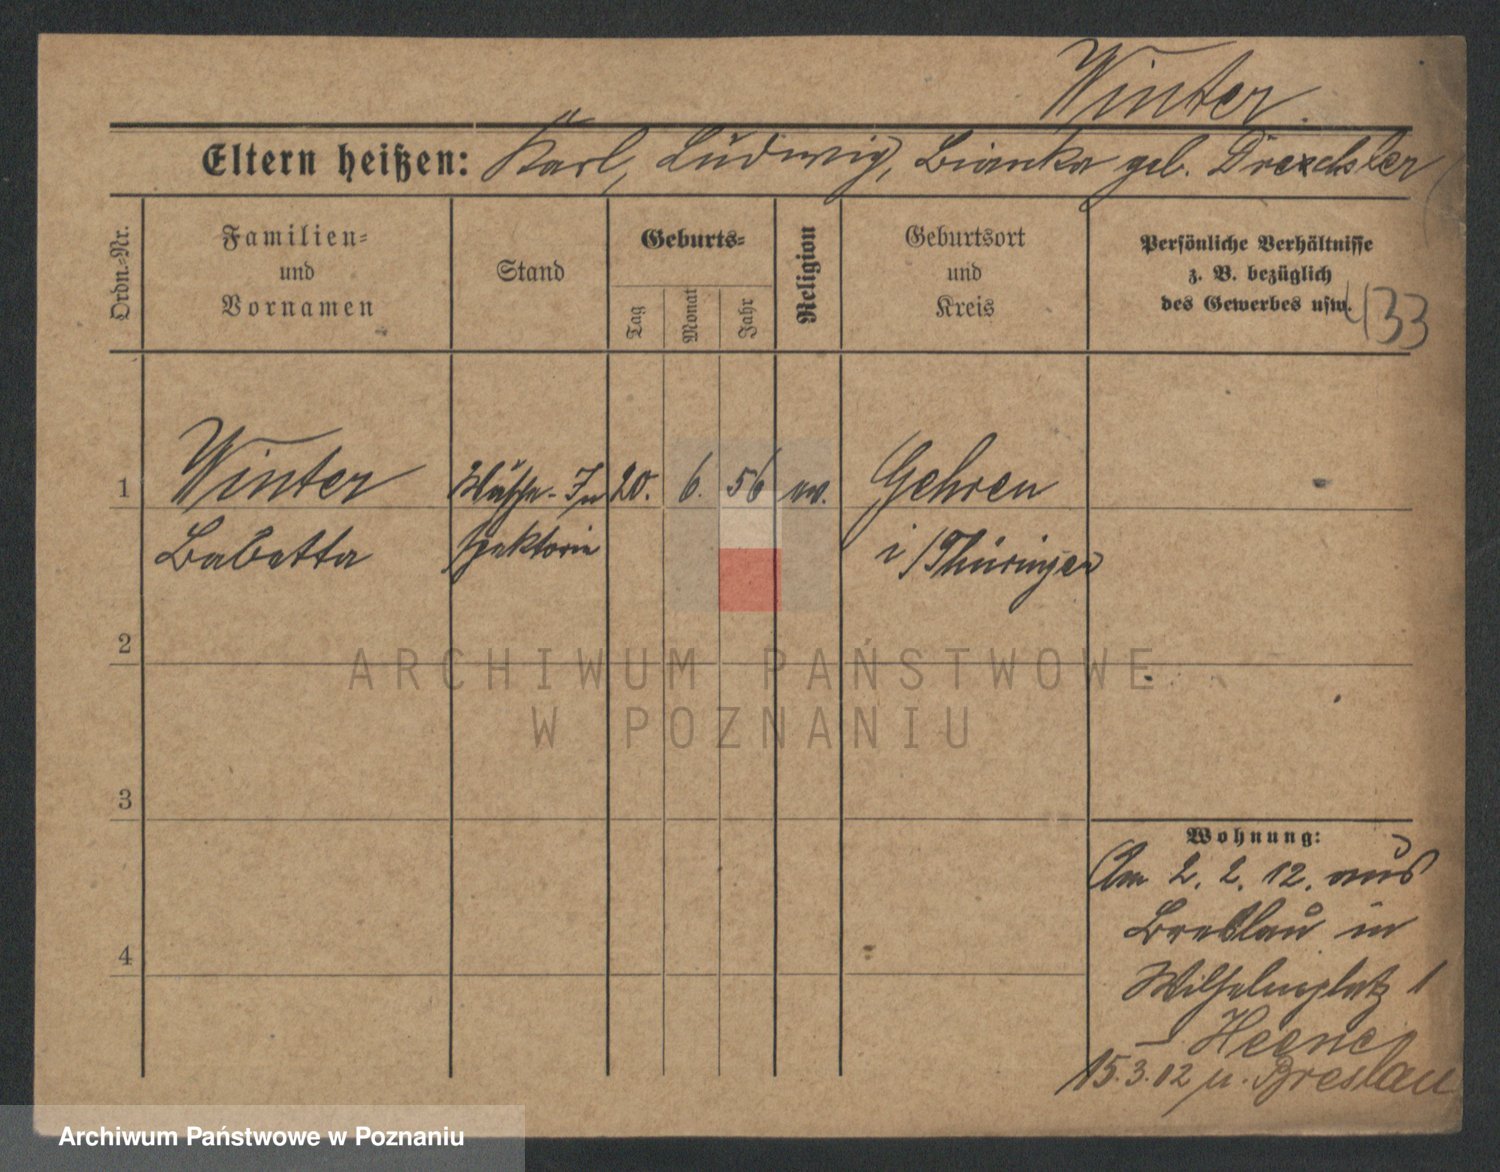 Winter
Eltern heißen: Karl, Ludwig, Bianka geb. Drechsler
Ordn.-Nr.
Familien-
und
Vornamen
Stand
Geburts-
Tag
Monat
Jahr
Religion
Geburtsort
und
Kreis
Persönliche Verhältnisse
z. B. bezüglich
des Gewerbes usw.
433
1
Winter
Babetta
Wäsche-In
spektorin
20.
6.
56
ev.
Gehren
i/Thüringen
2
3
4
Wohnung:
Am 2. 2. 12. aus
Breslau in
Wilhelmplatz 1
15.3.12 n. Breslau
ARCHIWUM PAŃSTWOWE
W POZNANIU
Archiwum Państwowe w Poznaniu